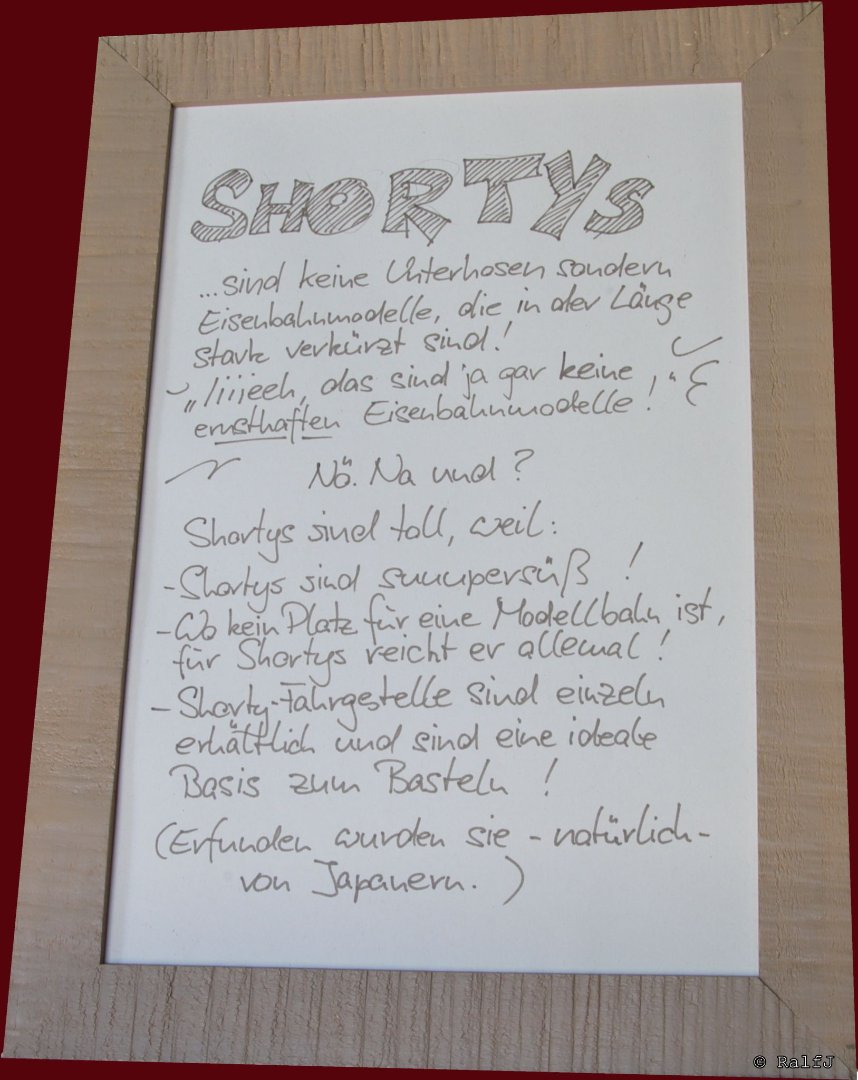 SHORTYS
...sind keine Unterhosen sondern
Eisenbahnmodelle, die in der Länge
stark verkürzt sind!
„Iiijeeh, das sind ja gar keine
ernsthaften Eisenbahnmodelle!“
Nö. Na und?
Shortys sind toll, weil:
-Shortys sind suuupersüß !
-Wo kein Platz für eine Modellbahn ist,
für Shortys reicht er allemal!
- Shorty-Fahrgestelle sind einzeln
erhältlich und sind eine ideale
Basis zum Basteln !
(Erfunden wurden sie - natürlich-
von Japanern. )
© RalfJ